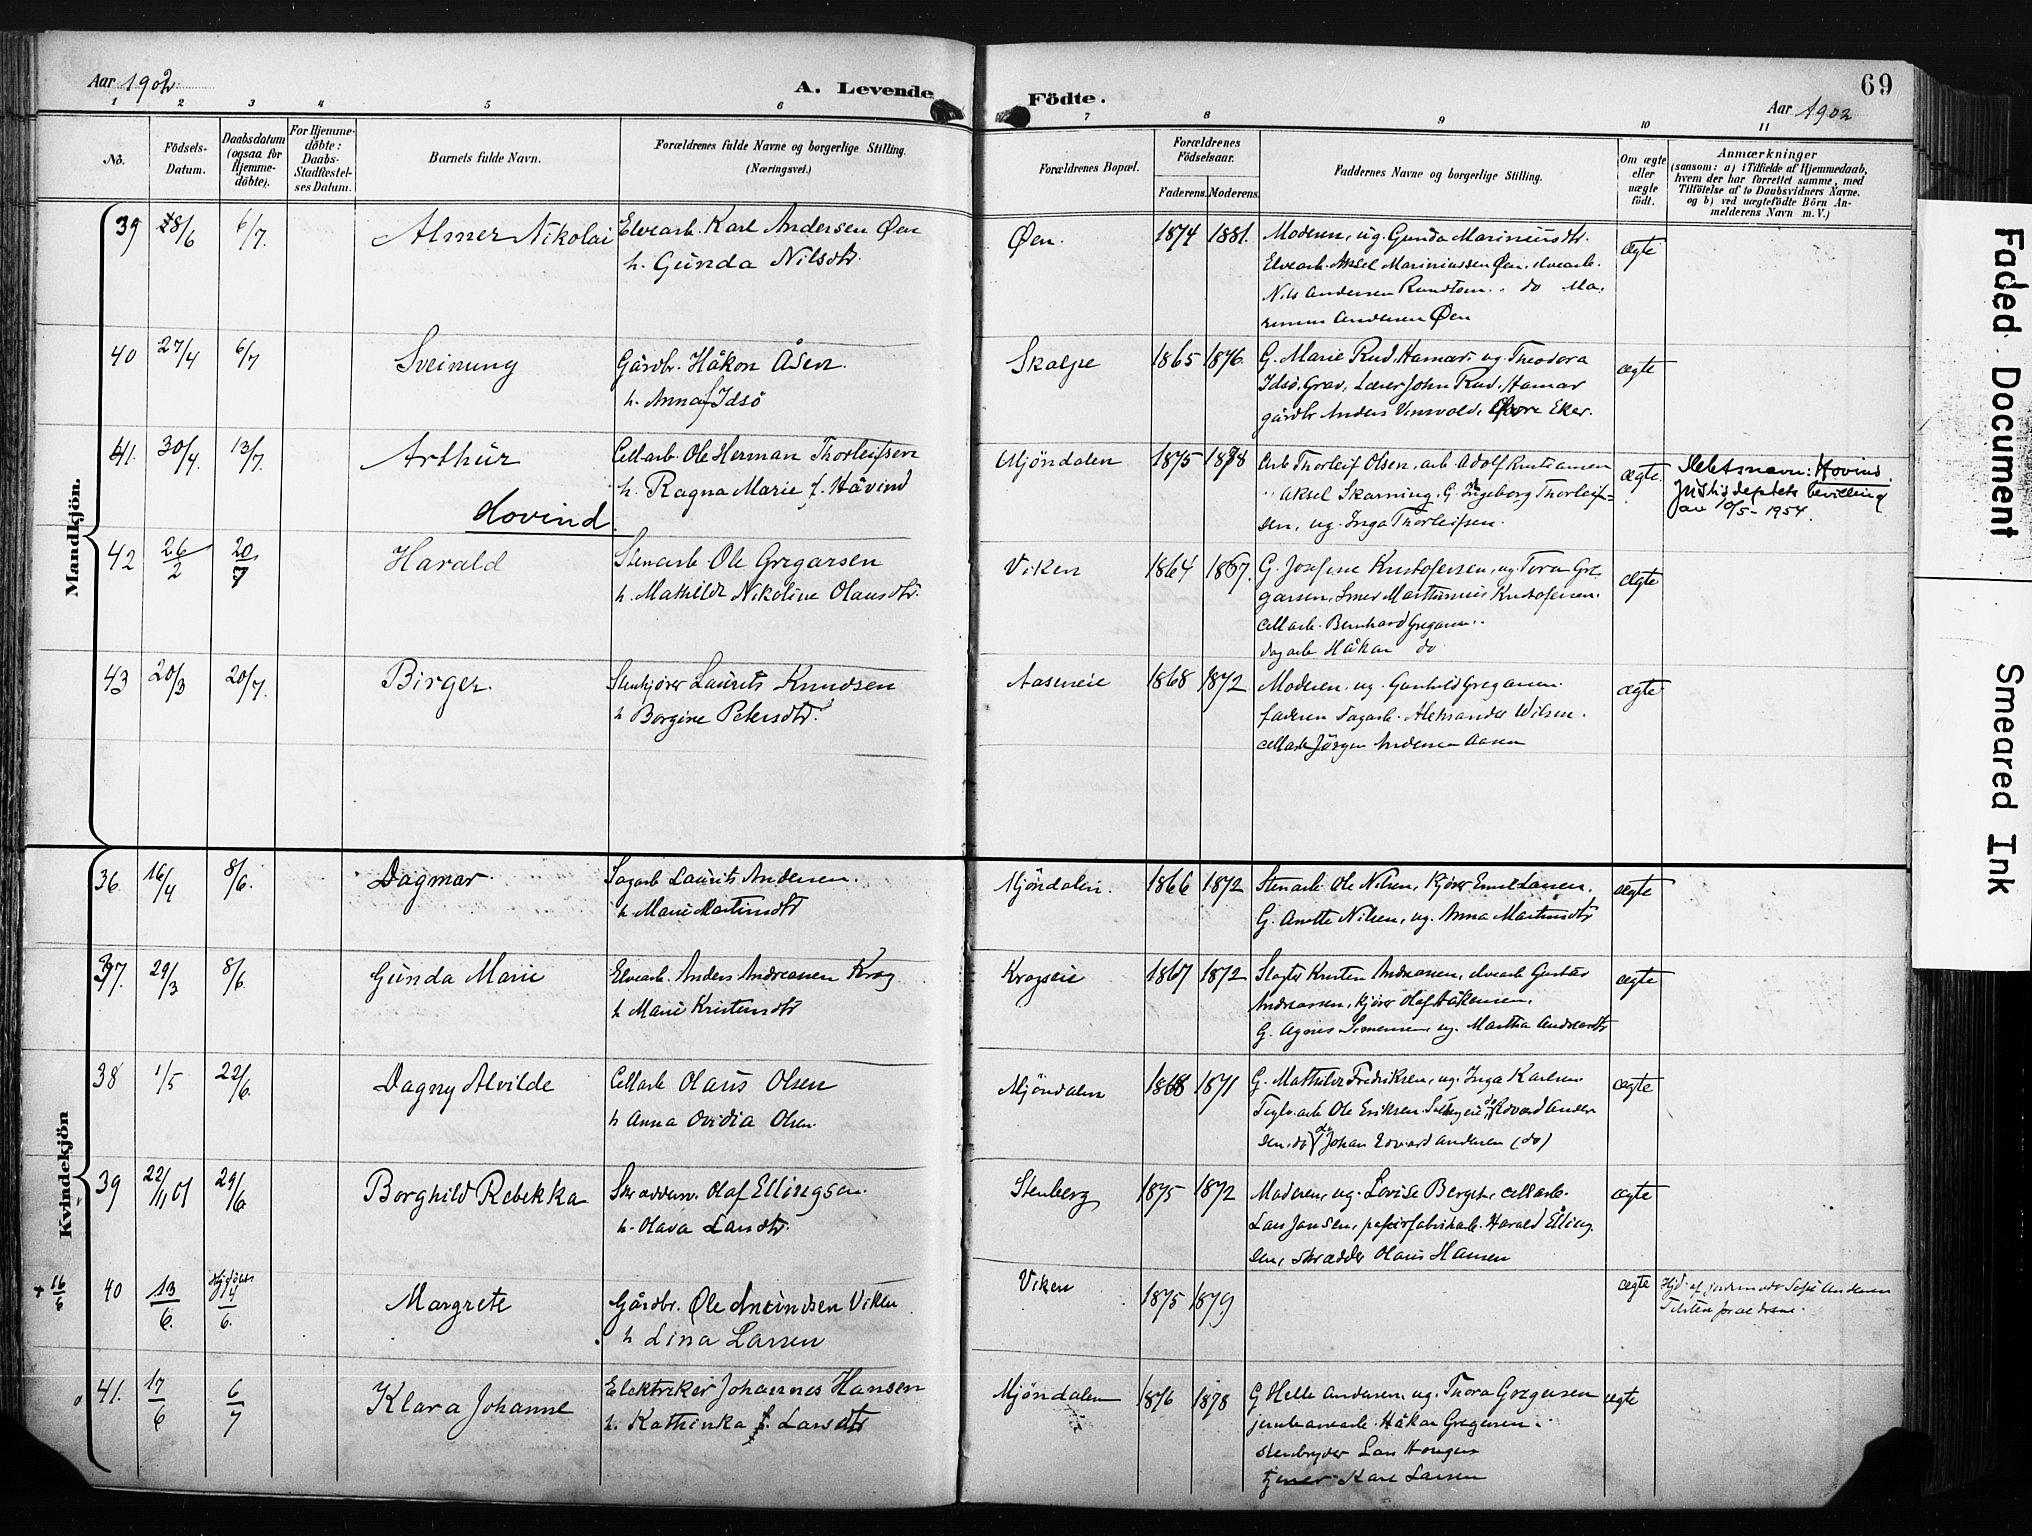 Aar 1902
A. Levende Födte.
69
Aar 1902
1 2 3 4 5 6 7 8 9 10 11
No.
Födsels-Datum.
Daabsdatum (ogsaa for Hjemme-döbte).
For Hjemme-döbte: Daabs-Stadfæstel-ses Datum.
Barnets fulde Navn.
Forældrenes fulde Navne og borgerlige Stilling. (Næringsvei.)
Forældrenes Bopæl.
Forældrenes Födselsaar.
Faderens. Moderens.
Faddernes Navne og borgerlige Stilling.
Om ægte eller uægte födt.
Anmærkninger
(saasom: a) i Tilfælde af Hjemmedaab, hvem der har forrettet samme, med Tilföielse af to Daabsvidners Navne. og b) ved uægtefödte Börn An-melderens Navn m. V.)
Mandkjön.
39 28/6 6/7. Almer Nikolai Elvearb. Karl Andersen Øen Øen. 1874 1881. Moderen, ug. Gunda Mariniusdtr. ægte
h. Gunda Nilsdtr. Elvearb. Aksel Mariniussen Øen, elvearb.
Nils Andersen Rundtom .. do Ma-
Andersen Øen
40 27/4 6/7 Sveinung Gårdbr. Håkon Åsen. Skalpe 1865 1876. G. Marie Rud, Hamar, ug Theodora ægte
h. Anna f Idsö Idsö, Grav, Lærer John Rud, Hamar
gårdbr Anders Øvre Eker.
41. 30/4. 13/7. Arthur Cellarb. Ole Herman Thorleifsen Mjöndalen 1875 1878 Arb Thorleif Olsen, arb Adolf Kristiansen ægte. Slektsnavn: Hovind.
h. Ragna Marie f. Håvind " Aksel Skarning, G. Ingeborg Thorleif- Justisdeptets bevilling
Hovind. sen, ug. Inga Thorleifsen. av 10/5-1954.
42 26/2 20/7 Harald Stenarb Ole Gregarsen Viken 1864 1867. G. Josefine Kristofersen, ug Tora Gre- ægte
h. Mathilde Nikoline Olausdtr. garsen, Kristofersen.
cellarb. Bernhard Gregarsen ..
dagarb Håkon do
43 20/3 20/7. Birger. Stenkjörer Laurits Knudsen Aaseneie 1868 1872 Moderen, ug. Gunhild Gregarsen ægte
h Borgine Petersdtr. faderen Sagarb. Aleksander Wilsen.
cellarb Jörgen Andersen Aasen
Kvindekjön
36 16/4 8/6. Dagmar. Sagarb Laurits Andersen. Mjöndalen. 1866 1872 Stenarb Ole Nilsen, kjörer Emil Larsen, ægte
h Marie Martinsdtr G. Anette Nilsen, ug. Anna Martinsdtr
37. 29/3 8/6. Gunda Marie Elvearb. Anders Andreassen Krog Krogseie 1867 1872 Slagter Kristen Andreassen, elvearb Gustav ægte
h Marie Kristensdtr Andreassen, kjörer Olaf Håkensen,
G. Agnes Simensen, ug. Martha Andreasdtr
38 1/5 22/6. Dagny Alvilde Cellarb Olaus Olsen Mjöndalen 1868 1871 G. Mathilde Fredriksen, ug. Inga Karlsen ægte
h Anna Ovidia Olsen. Teglv.arb Ole Eriksen Edvard Ander
sen, do Johan Edvard Andersen (do)
39 22/11 01 29/6 Borghild Rebekka Skrædderm. Olaf Ellingsen. Stenberg 1875 1872 Moderen, ug. Lovise Berget, cellarb. ægte
h. Olava Larsdtr. Lars Jansen, papirfabrikarb. Harald Elling
sen, skrædder Olaus Hansen
+ 16/6 40 13/6. Hjdöbt 14/6. Margrete Gårdbr. Ole Amundsen Viken Viken 1875 1879 ægte Hjd. af jordmor Sofie Andersen
h Lina Larsen Testen forældrene.
41. 17/6 6/7 Klara Johanne Elektriker Johannes Hansen Mjöndalen 1876 1878 G Helle Andersen, ug. Thora Gregersen ægte
h. Kathinka f. Larsdtr jernbanearb. Håkan Gregersen.
stenbryder Lars Hongen
tjener Karl Larsen
Faded Document
Smeared Ink